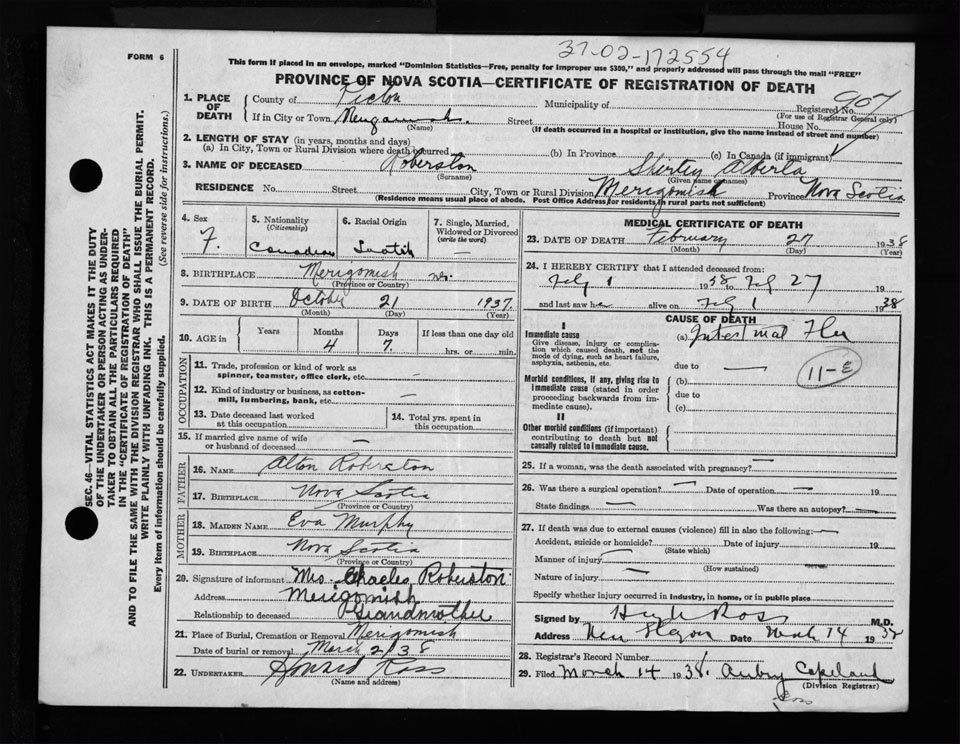 37-02-172554
FORM 6
This form if placed in an envelope, marked "Dominion Statistics—Free, penalty for improper use $300," and properly addressed will pass through the mail "FREE"
PROVINCE OF NOVA SCOTIA—CERTIFICATE OF REGISTRATION OF DEATH
1. PLACE OF DEATH
County of Pictou Municipality of Registered No. 907
(For use of Registrar General only)
If in City or Town Street House No.
(Name) (If death occurred in a hospital or institution, give the name instead of street and number)
2. LENGTH OF STAY (in years, months and days)
(a) In City, Town or Rural Division where death occurred (b) In Province (c) In Canada (if immigrant)
3. NAME OF DECEASED Roberston Shirley Alberta
(Surname) (Given name or names)
RESIDENCE No. Street City, Town or Rural Division Merigomish Province Nova Scotia
(Residence means usual place of abode. Post Office Address for residents in rural parts not sufficient)
4. Sex F.
5. Nationality (Citizenship) Canadian
6. Racial Origin Scotish
7. Single, Married, Widowed or Divorced (write the word) —
8. BIRTHPLACE Merigomish N.S.
(Province or Country)
9. DATE OF BIRTH October 21 1937.
(Month) (Day) (Year)
10. AGE in Years Months Days If less than one day old
4 7 hrs. or min.
OCCUPATION
11. Trade, profession or kind of work as spinner, teamster, office clerk, etc. —
12. Kind of industry or business, as cotton-mill, lumbering, bank, etc. —
13. Date deceased last worked at this occupation
14. Total yrs. spent in this occupation
15. If married give name of wife or husband of deceased —
FATHER
16. NAME Alton Roberston
17. BIRTHPLACE Nova Scotia
(Province or Country)
MOTHER
18. MAIDEN NAME Eva Murphy
19. BIRTHPLACE Nova Scotia
(Province or Country)
20. Signature of informant Mrs. Charles Roberston
Address Merigomish
Relationship to deceased Grandmother
21. Place of Burial, Cremation or Removal Merigomish
Date of burial or removal March 2/38
22. UNDERTAKER Howard Ross
(Name and address)
MEDICAL CERTIFICATE OF DEATH
23. DATE OF DEATH February 27 1938
(Month) (Day) (Year)
24. I HEREBY CERTIFY that I attended deceased from:
Feby 1 1938 to Feby 27 19
and last saw her alive on Feby 1 1938
CAUSE OF DEATH
I
Immediate cause
Give disease, injury or complication which caused death, not the mode of dying, such as heart failure, asphyxia, asthenia, etc.
(a) Intestinal Flu
due to —
11-E
Morbid conditions, if any, giving rise to immediate cause (stated in order proceeding backwards from immediate cause).
(b)
due to
(c)
II
Other morbid conditions (if important) contributing to death but not causally related to immediate cause.
25. If a woman, was the death associated with pregnancy? —
26. Was there a surgical operation? — Date of operation — 19
State findings — Was there an autopsy? —
27. If death was due to external causes (violence) fill in also the following:—
Accident, suicide or homicide? Date of injury 19
(State which)
Manner of injury —
(How sustained)
Nature of injury —
Specify whether injury occurred in industry, in home, or in public place
Signed by Hugh Ross M.D.
Address Date 14 19
28. Registrar's Record Number
29. Filed March 14 1938. Aubry Copeland
(Division Registrar)
SEC. 46—VITAL STATISTICS ACT MAKES IT THE DUTY
OF THE UNDERTAKER OR PERSON ACTING AS UNDER-
TAKER TO OBTAIN ALL THE PARTICULARS REQUIRED
IN THE "CERTIFICATE OF REGISTRATION OF DEATH"
AND TO FILE THE SAME WITH THE DIVISION REGISTRAR WHO SHALL ISSUE THE BURIAL PERMIT.
WRITE PLAINLY WITH UNFADING INK. THIS IS A PERMANENT RECORD.
Every item of information should be carefully supplied. (See reverse side for instructions.)